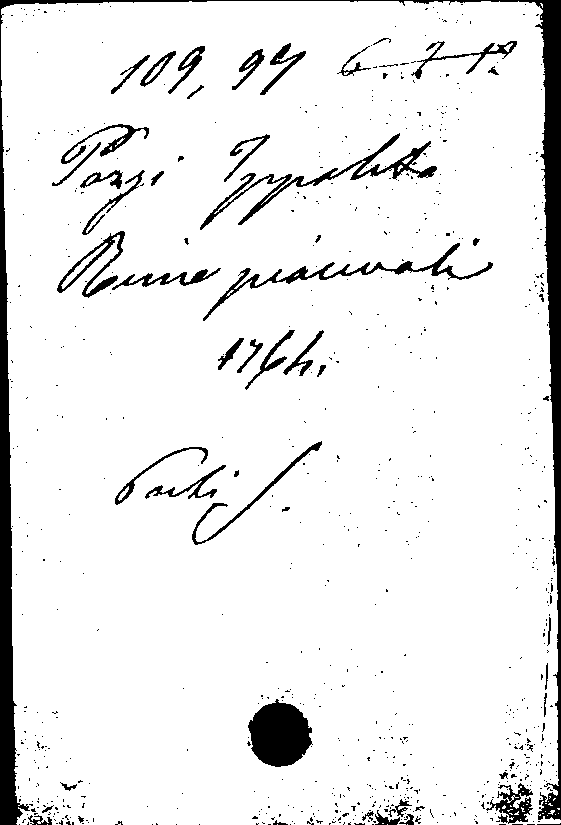 109, 97 6. 7. 17.
Pozzi Ippolito
Rime piacevoli
1764.